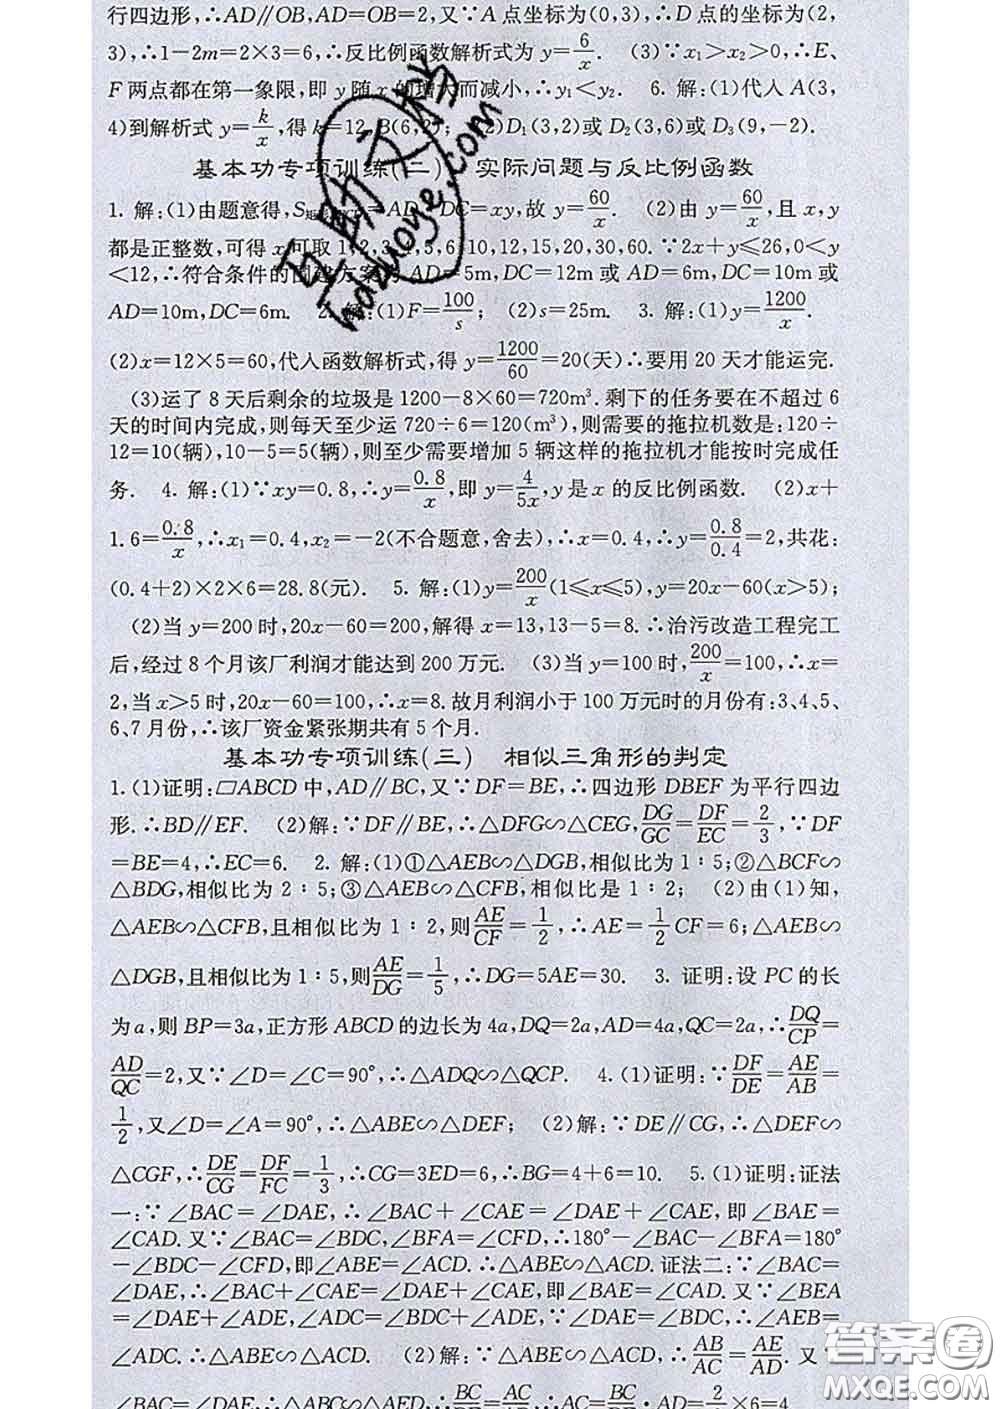 行四边形,∴AD∥OB,AD=OB=2,又∵A点坐标为(0,3),∴D点的坐标为(2,
3),∴1-2m=2×3=6,∴反比例函数解析式为 y=6/x. (3)∵x₁>x₂>0,∴E、
F两点都在第一象限,即 y 随 x 的增大而减小,∴y₁<y₂. 6. 解:(1)代入 A(3,
4)到解析式 y=k/x,得 k=12,B(6,2); (2)D₁(3,2)或 D₂(3,6)或 D₃(9,-2).
基本功专项训练(二) 实际问题与反比例函数
1. 解:(1)由题意得,S =AD DC=xy,故 y=60/x. (2)由 y=60/x,且 x,y
都是正整数,可得 x 可取 1,2,3,4,5,6,10,12,15,20,30,60. ∵2x+y≤26,0<y
<12,∴符合条件的围建方案为 AD=5m,DC=12m 或 AD=6m,DC=10m 或
AD=10m,DC=6m. 2. 解:(1)F=100/s; (2)s=25m. 3. 解:(1)y=1200/x.
(2)x=12×5=60,代入函数解析式,得 y=1200/60=20(天)∴要用 20 天才能运完.
(3)运了 8 天后剩余的垃圾是 1200-8×60=720m³. 剩下的任务要在不超过 6
天的时间内完成,则每天至少运 720÷6=120(m³),则需要的拖拉机数是:120÷
12=10(辆),10-5=5(辆),则至少需要增加 5 辆这样的拖拉机才能按时完成任
务. 4. 解:(1)∵xy=0.8,∴y=0.8/x,即 y=4/5x,y 是 x 的反比例函数. (2)x+
1.6=0.8/x,∴x₁=0.4,x₂=-2(不合题意,舍去),∴x=0.4,∴y=0.8/0.4=2,共花:
(0.4+2)×2×6=28.8(元). 5. 解:(1)y=200/x(1≤x≤5),y=20x-60(x>5);
(2)当 y=200 时,20x-60=200,解得 x=13,13-5=8.∴治污改造工程完工
后,经过 8 个月该厂利润才能达到 200 万元. (3)当 y=100 时,200/x=100,∴x=
2,当 x>5 时,20x-60=100,∴x=8. 故月利润小于 100 万元时的月份有:3、4、5、
6、7 月份,∴该厂资金紧张期共有 5 个月.
基本功专项训练(三) 相似三角形的判定
1. (1)证明:▱ABCD 中,AD∥BC,又∵DF=BE,∴四边形 DBEF 为平行四边
形.∴BD∥EF. (2)解:∵DF∥BE,∴△DFG∽△CEG,DG/GC=DF/EC=2/3,∵DF
=BE=4,∴EC=6. 2. 解:(1)①△AEB∽△DGB,相似比为 1∶5;②△BCF∽
△BDG,相似比为 2∶5;③△AEB∽△CFB,相似比是 1∶2; (2)由(1)知,
△AEB∽△CFB,且相似比为 1∶2,则AE/CF=1/2,∴AE=1/2CF=6;△AEB∽
△DGB,且相似比为 1∶5,则AE/DG=1/5,∴DG=5AE=30. 3. 证明:设 PC 的长
为 a,则 BP=3a,正方形 ABCD 的边长为 4a,DQ=2a,AD=4a,QC=2a,∴DQ/CP=
AD/QC=2,又∵∠D=∠C=90°,∴△ADQ∽△QCP. 4. (1)证明:∵DF/DE=AE/AB=
1/2,又∠D=∠A=90°,∴△ABE∽△DEF; (2)解:∵DE∥CG,∴△DEF∽
△CGF,∴DE/CG=DF/FC=1/3,∴CG=3ED=6,∴BG=4+6=10. 5. (1)证明:证法
一:∵∠BAC=∠DAE,∴∠BAC+∠CAE=∠DAE+∠CAE,即∠BAE=
∠CAD. 又∵∠BAC=∠BDC,∠BFA=∠CFD,∴180°-∠BAC-∠BFA=180°
-∠BDC-∠CFD,即∠ABE=∠ACD.∴△ABE∽△ACD. 证法二:∵∠BAC=
∠DAE,∴∠BAC+∠CAE=∠DAE+∠CAE,即∠BAE=∠CAD. 又∵∠BEA
=∠DAE+∠ADE,∠ADC=∠BDC+∠ADE,∵∠DAE=∠BDC,∴∠AEB=
∠ADC.∴△ABE∽△ACD. (2)解:∵△ABE∽△ACD,∴AB/AC=AE/AD. 又∵
∠BAC=∠DAE,∴△ABC∽△AED,∴BC/DE=AC/AD,∴AC=BC/DE·AD=2/3×6=4
互助文档
hdzuoye.com
答案圈
MXQE.COM